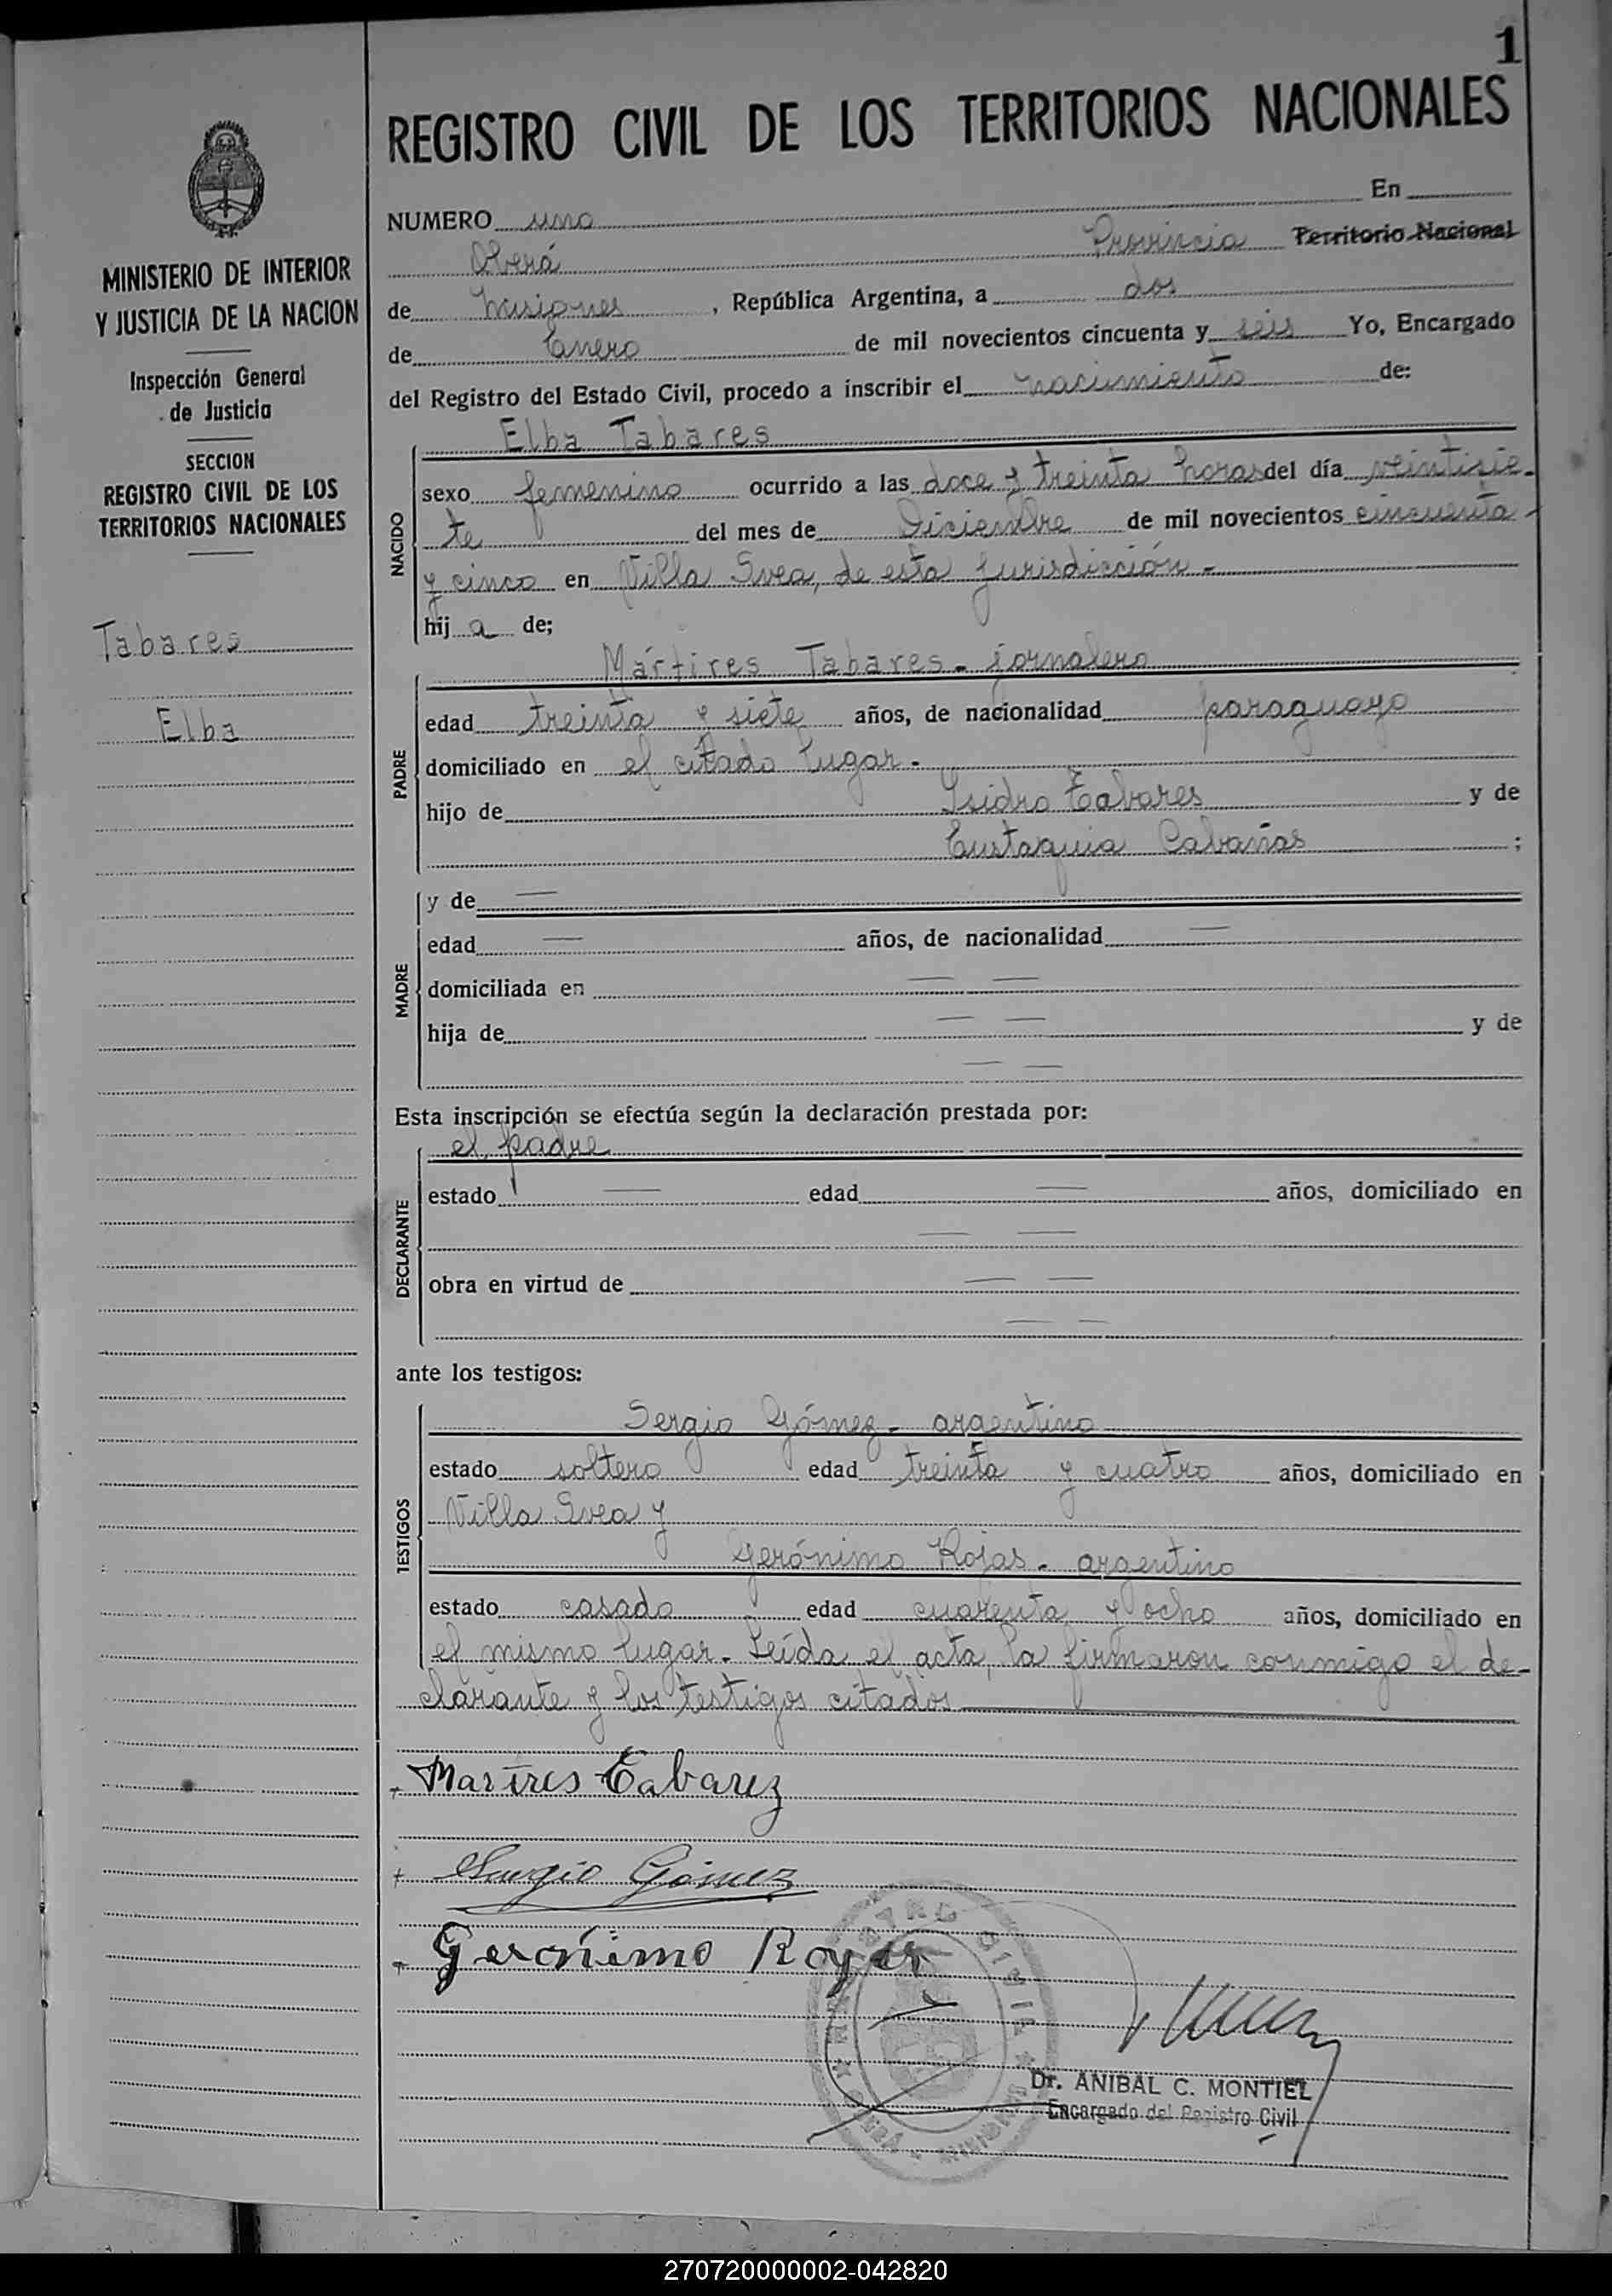 1
REGISTRO CIVIL DE LOS TERRITORIOS NACIONALES
MINISTERIO DE INTERIOR
Y JUSTICIA DE LA NACION
Inspección General
de Justicia
SECCION
REGISTRO CIVIL DE LOS
TERRITORIOS NACIONALES
Tabares
Elba
NUMERO uno En
Oberá Provincia Territorio Nacional
de Misiones, República Argentina, a dos
de Enero de mil novecientos cincuenta y seis Yo, Encargado
del Registro del Estado Civil, procedo a inscribir el nacimiento de:
Elba Tabares
NACIDO
sexo femenino ocurrido a las doce y treinta horas del día veintisie-
te del mes de Diciembre de mil novecientos cincuenta
y cinco en Villa Svea, de esta jurisdicción.-
hij a de;
Mártires Tabares - jornalero
PADRE
edad treinta y siete años, de nacionalidad paraguayo
domiciliado en el citado lugar.
hijo de Isidro Tabares y de
Eustaquia Cabañas ;
MADRE
y de —
edad — años, de nacionalidad —
domiciliada en — —
hija de — — y de
— —
Esta inscripción se efectúa según la declaración prestada por:
el padre
DECLARANTE
estado — edad — años, domiciliado en
— —
obra en virtud de — —
— —
ante los testigos:
TESTIGOS
Sergio Gómez - argentino
estado soltero edad treinta y cuatro años, domiciliado en
Villa Svea y
Gerónimo Rojas - argentino
estado casado edad cuarenta y ocho años, domiciliado en
el mismo lugar. Leída el acta, la firmaron conmigo el de-
clarante y los testigos citados
Martires Tabarez
Sergio Gómez
Gerónimo Royas
CIVIL
Dr. ANIBAL C. MONTIEL
Encargado del Registro Civil
270720000002-042820